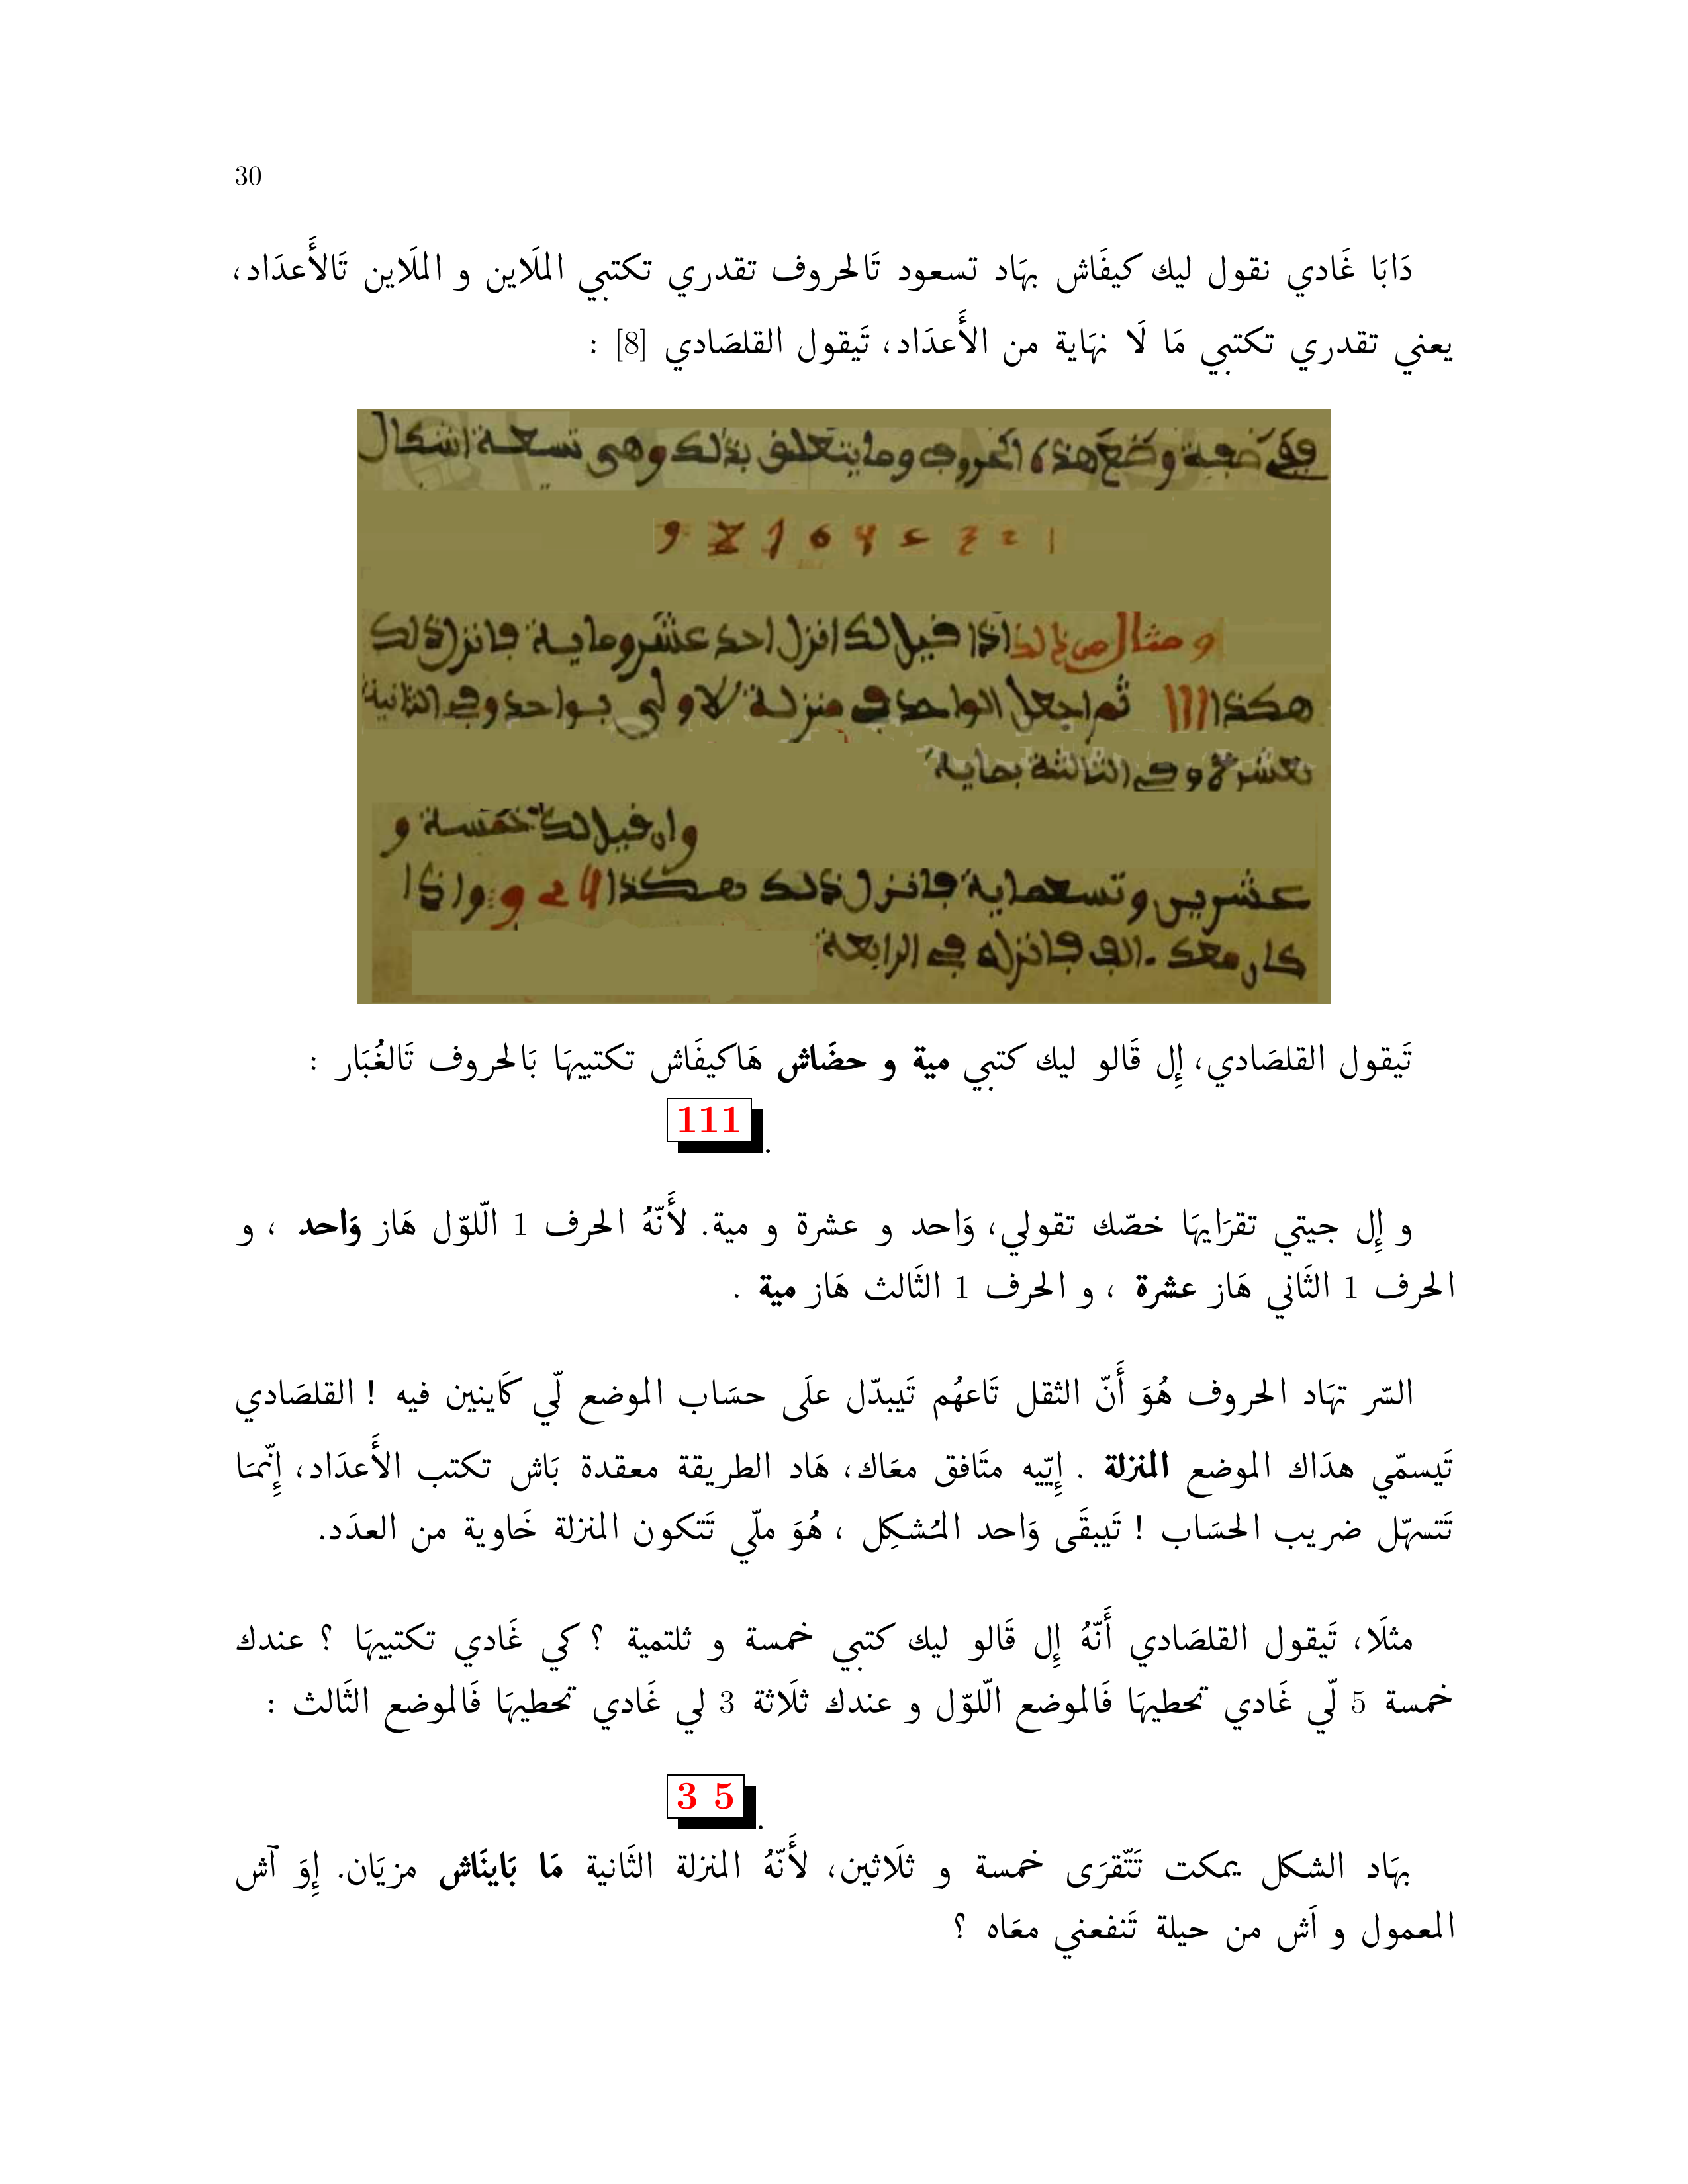 30
دَابَا غَادي نقول ليك كيفَاش بهَاد تسعود تَالحروف تقدري تكتبي الملَاين و الملَاين تَالأَعدَاد،
يعني تقدري تكتبي مَا لَا نهَاية من الأَعدَاد، تَيقول القلصَادي [8] :
في صفة وضع هذه الحروف وما يتعلق بذلك وهي تسعة اشكال
ومثال من ذلك اذا قيل لك انزل احد عشر وماية فانزل ذلك
هكذا 111 ثم اجعل الواحد في منزلة الاولى بواحد وفي الثانية
بعشرة وفي الثالثة بماية
وان قيل لك خمسة و
عشرين وتسعماية فانزل ذلك هكذا 925 واذا
كان معك الف فانزله في الرابعة
تَيقول القلصَادي، إِل قَالو ليك كتبي مية و حضَاش هَاكيفَاش تكتبيهَا بَالحروف تَالغُبَار :
111.
و إِل جيتي تقرَايهَا خصّك تقولي، وَاحد و عشرة و مية. لأَنّهُ الحرف 1 الّلوّل هَاز وَاحد ، و
الحرف 1 الثَاني هَاز عشرة ، و الحرف 1 الثَالث هَاز مية .
السّر تهَاد الحروف هُوَ أَنّ الثقل تَاعهُم تَيبدّل علَى حسَاب الموضع لّي كَاينين فيه ! القلصَادي
تَيسمّي هدَاك الموضع المنزلة . إِيّيه متَافق معَاك، هَاد الطريقة معقدة بَاش تكتب الأَعدَاد، إِنّمَا
تَتسهّل ضريب الحسَاب ! تَيبقَى وَاحد المُشكِل ، هُوَ ملّي تَتكون المنزلة خَاوية من العدَد.
مثلَا، تَيقول القلصَادي أَنّهُ إِل قَالو ليك كتبي خمسة و ثلتمية ؟ كي غَادي تكتبيهَا ؟ عندك
خمسة 5 لّي غَادي تحطيهَا فَالموضع الّلوّل و عندك ثلَاثة 3 لي غَادي تحطيهَا فَالموضع الثَالث :
3 5.
بهَاد الشكل يمكت تَتّقرَى خمسة و ثلَاثين، لأَنّهُ المنزلة الثَانية مَا بَاينَاش مزيَان. إِوَ آش
المعمول و اَش من حيلة تَنفعني معَاه ؟